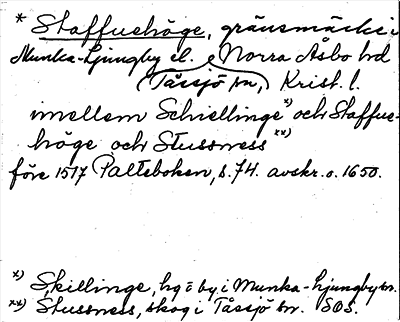 * Staffushöge, gränsmärke i
Munka-Ljungby el. Norra Åsbo hd
(Tåssjö sn, Krist. l.
imellem Schiellinge *) och Staffus-
höge och Stussness **)
före 1517 Palteboken, s. 74. avskr. o. 1650.
*) Skillinge, hg o by i Munka-Ljungby sn.
**) Stussness, skog i Tåssjö sn. SOS.